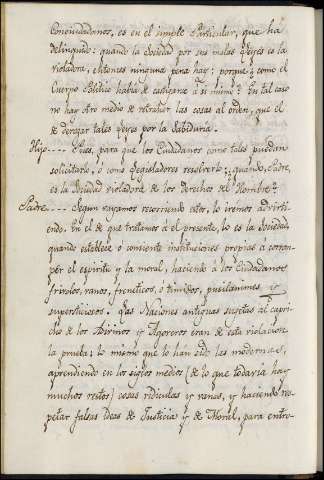 Conciudadanos, es en el simple Particular, que ha
delinquido: quando la Sociedad por sus malas Leyes es la
violadora, entonces ninguna pena hay; porque ¿como el
Cuerpo Politico habia de castigarse à si mismo? En tal caso
no hay otro medio de retraher las cosas al orden, que el
de derogar tales Leyes por la Sabiduria.
Hijo.... Pues, para que los Ciudadanos como tales puedan
solicitarlo, ò como Legisladores resolverlo; ¿quando, Padre,
es la Sociedad violadora de los Derechos del Hombre?
Padre.... Segun vayamos recorriendo estos, lo iremos advirti-
endo. En el de que tratamos al presente, lo es la Sociedad,
quando establece ò consiente instituciones propias à corrom-
per el espiritu y la moral, haciendo à los Ciudadanos
frivolos, vanos, freneticos, ò timidos, pusilanimes y
supersticiosos. Las Naciones antiguas sugetas al capri-
cho de los Adivinos y Agoreros eran de esta violacion
la prueba; lo mismo que lo han sido las modernas,
aprendiendo en los siglos medios (de lo que todavia hay
muchos restos) cosas ridiculas y vanas, y haciendo res-
petar falsas ideas de Justicia y de Moral, para entro-